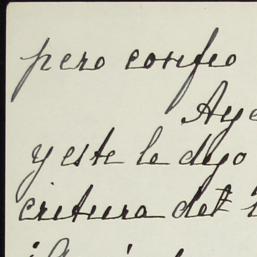 pero confio
Aye
y este le dejo
critura del